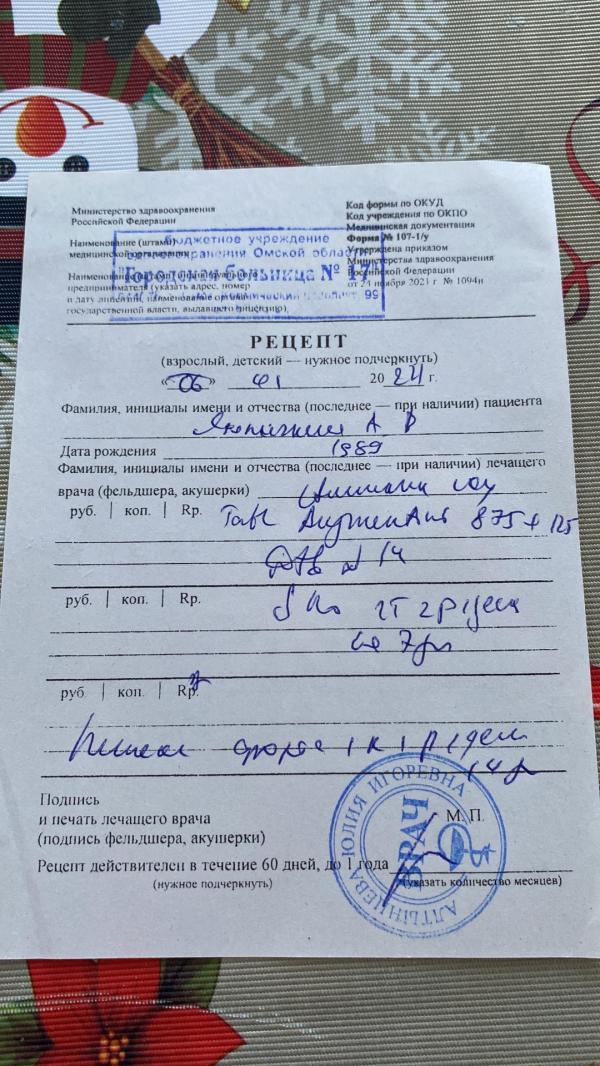 Министерство здравоохранения
Российской Федерации
Код формы по ОКУД
Код учреждения по ОКПО
Медицинская документация
Форма № 107-1/у
Утверждена приказом
Министерства здравоохранения
Российской Федерации
от 24 ноября 2021 г № 1094н
Наименование (штамп)
медицинской организации
бюджетное учреждение
здравоохранения Омской области
"Больница № 17"
предпринимателя (указать адрес, номер
и дату лицензии, наименование органа
государственной власти, выдавшего лицензию)
РЕЦЕПТ
(взрослый, детский — нужное подчеркнуть)
«06» 01 2024 г.
Фамилия, инициалы имени и отчества (последнее — при наличии) пациента
А В
Дата рождения 1989
Фамилия, инициалы имени и отчества (последнее — при наличии) лечащего
врача (фельдшера, акушерки)
руб. | коп. | Rp. Tabl Augmentini 875+125
Dtd N 14
руб. | коп. | Rp. S по 1т 2 р/день
7 дн
руб | коп. | Rp.
форте 1 к 1 р/день
14 д
Подпись
и печать лечащего врача
(подпись фельдшера, акушерки)
М. П.
АЛТЫНЦЕВА ЮЛИЯ ИГОРЕВНА
ВРАЧ
Рецепт действителен в течение 60 дней, до 1 года
(нужное подчеркнуть)
(указать количество месяцев)